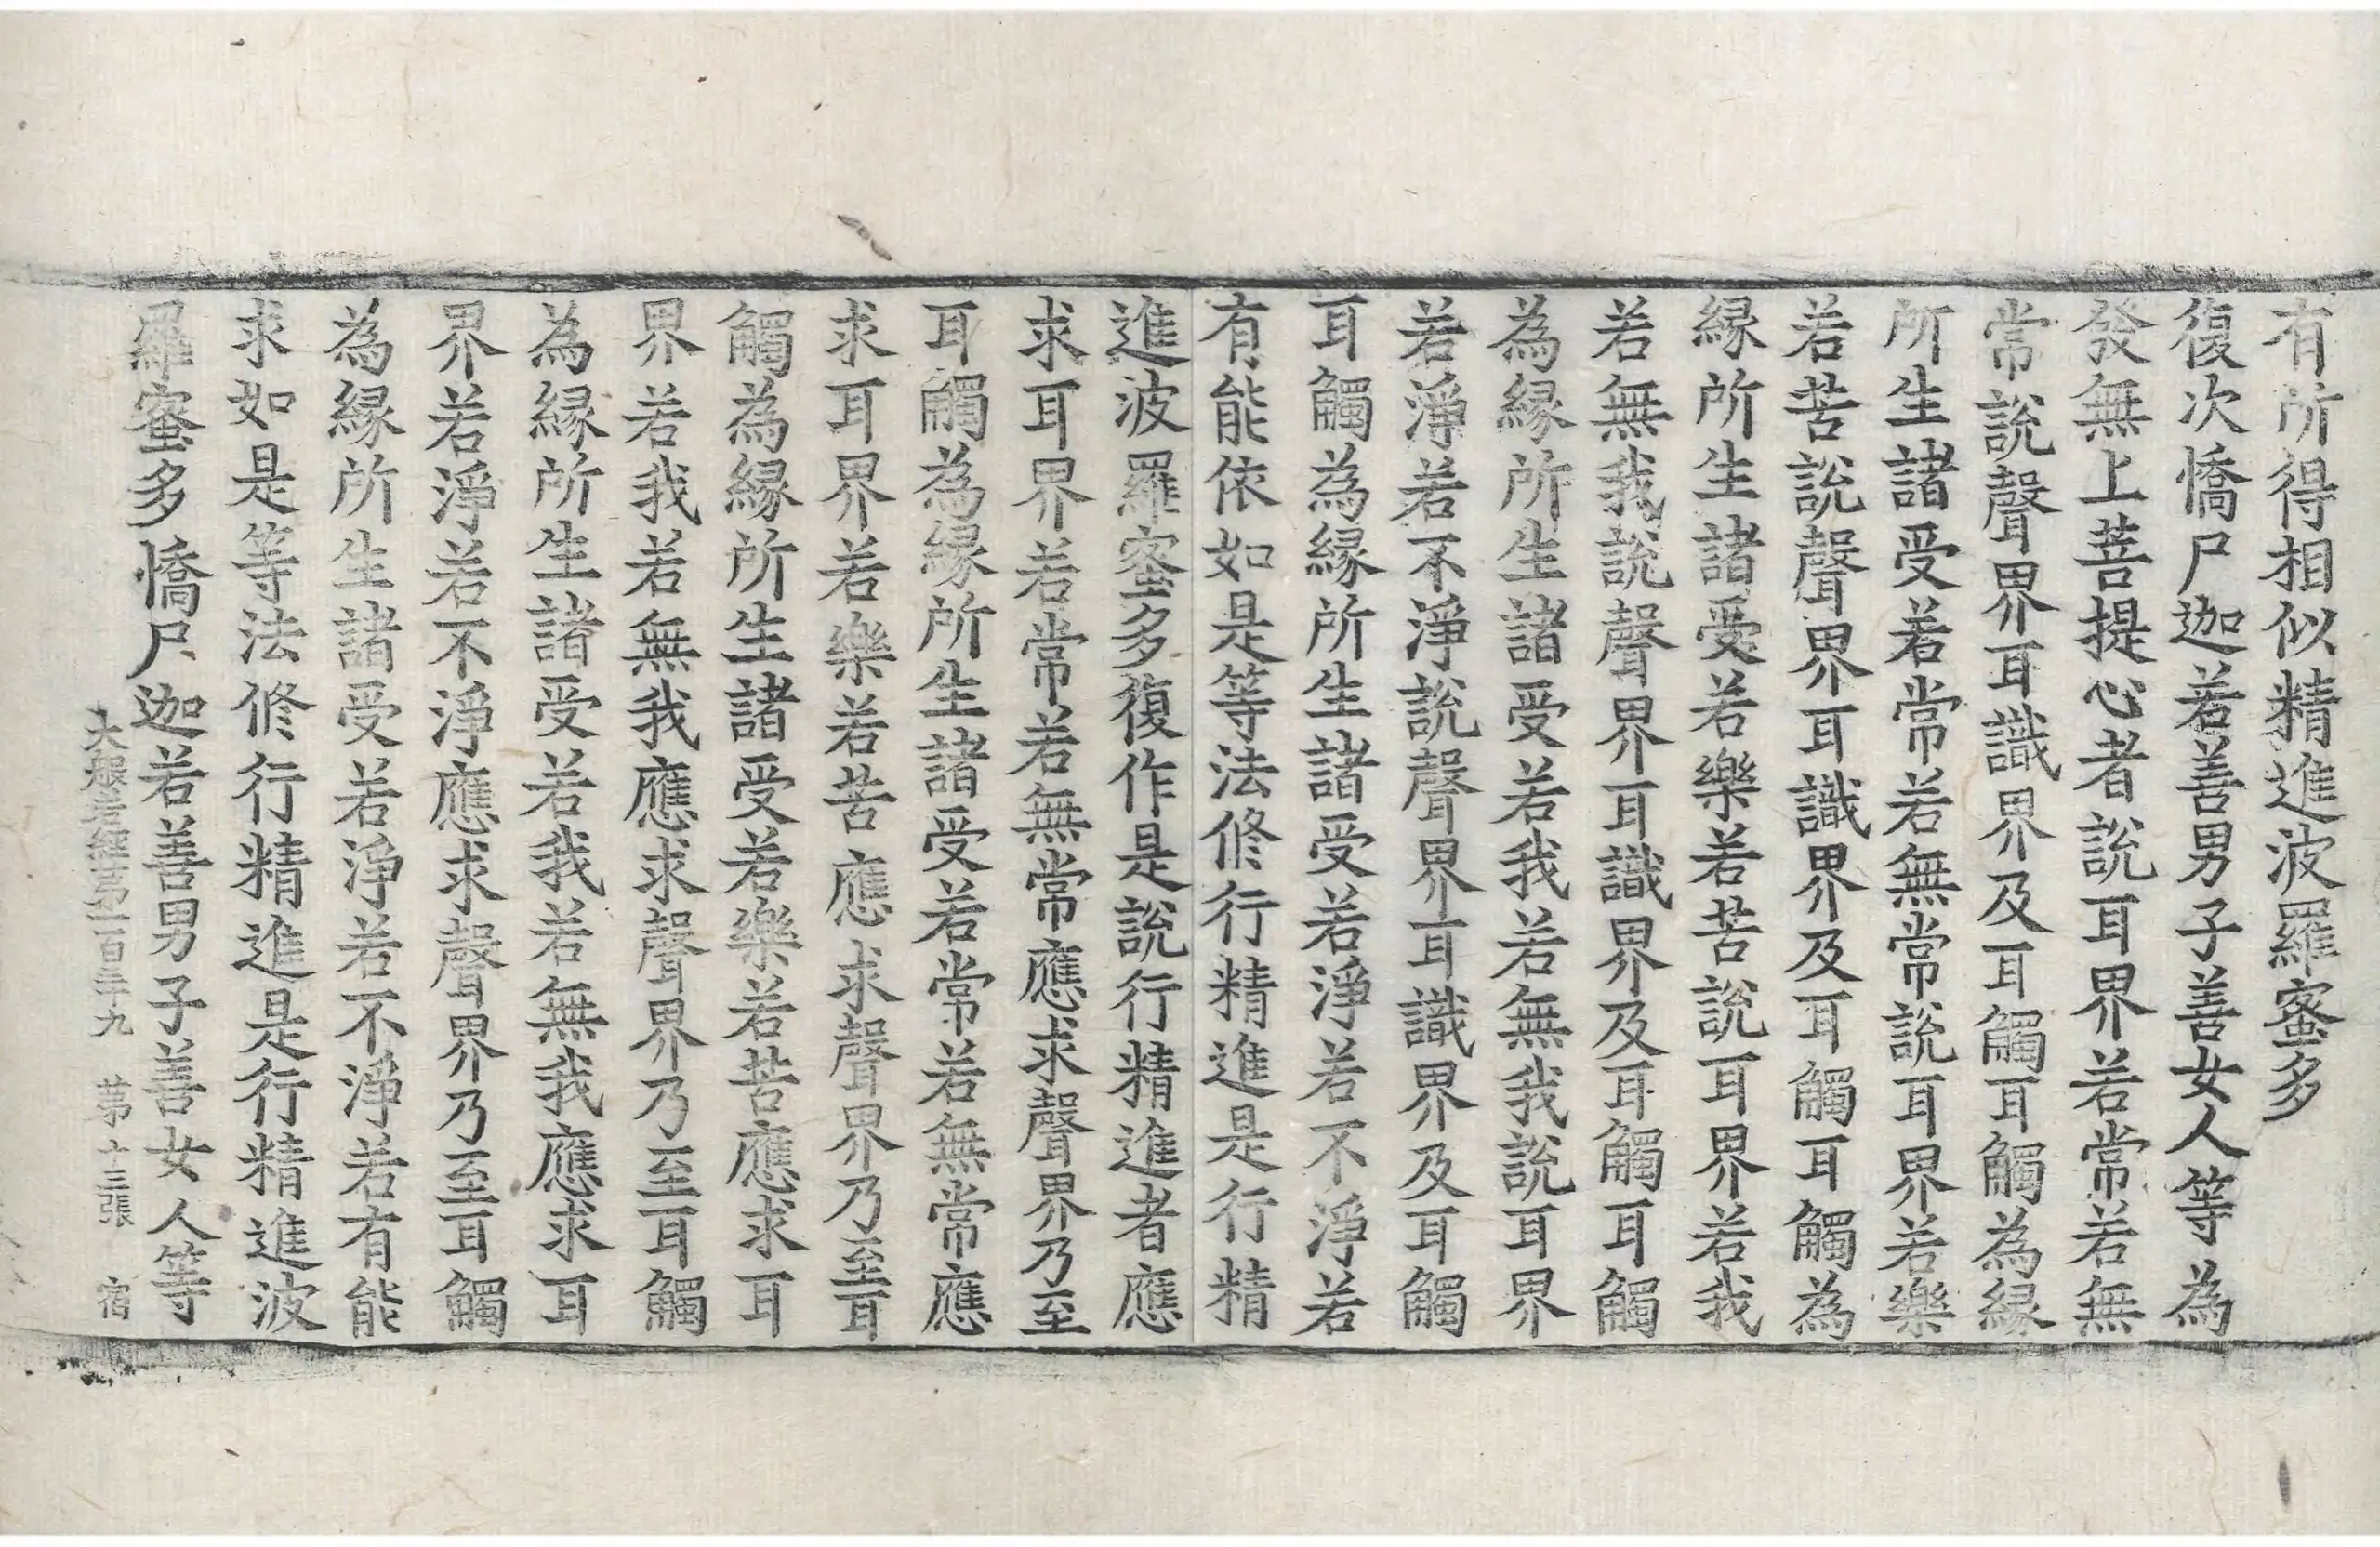 有所得相似精進波羅蜜多
復次憍尸迦若善男子善女人等為
發無上菩提心者說耳界若常若無
常說聲界耳識界及耳觸耳觸為緣
所生諸受若常若無常說耳界若樂
若苦說聲界耳識界及耳觸耳觸為
緣所生諸受若樂若苦說耳界若我
若無我說聲界耳識界及耳觸耳觸
為緣所生諸受若我若無我說耳界
若淨若不淨說聲界耳識界及耳觸
耳觸為緣所生諸受若淨若不淨若
有能依如是等法修行精進是行精
進波羅蜜多復作是說行精進者應
求耳界若常若無常應求聲界乃至
耳觸為緣所生諸受若常若無常應
求耳界若樂若苦應求聲界乃至耳
觸為緣所生諸受若樂若苦應求耳
界若我若無我應求聲界乃至耳觸
為緣所生諸受若我若無我應求耳
界若淨若不淨應求聲界乃至耳觸
為緣所生諸受若淨若不淨若有能
求如是等法修行精進是行精進波
羅蜜多憍尸迦若善男子善女人等
大般若經第一百五十九 第十三張 宿